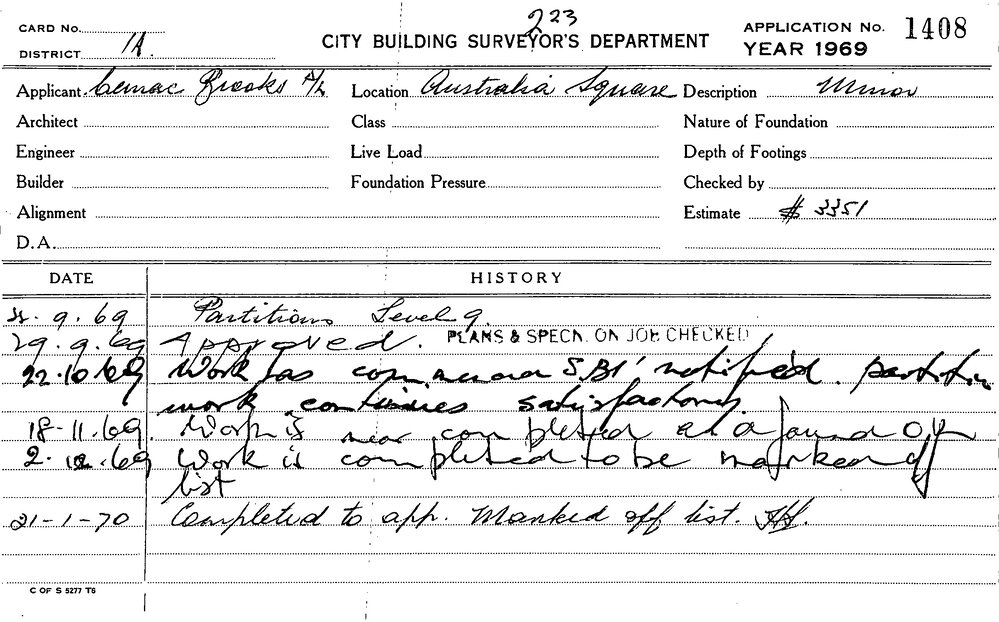 223
CARD No.
DISTRICT 1A.
CITY BUILDING SURVEYOR'S DEPARTMENT
APPLICATION No. 1408
YEAR 1969
Applicant Cemac Brooks P/L Location Australia Square Description Minor
Architect Class Nature of Foundation
Engineer Live Load Depth of Footings
Builder Foundation Pressure Checked by
Alignment Estimate $ 3351
D.A.
DATE HISTORY
9.69 Partitions Level 9
29.9.69 Approved. PLANS & SPECN. ON JOB CHECKED
22.10.69 Work has commenced S.B1 notified. partition
work continues satisfactory.
18-11.69. Work is near completed
2.12.69 Work is completed to be marked off
list
21-1-70 Completed to app. Marked off list.
C OF S 5277 T6